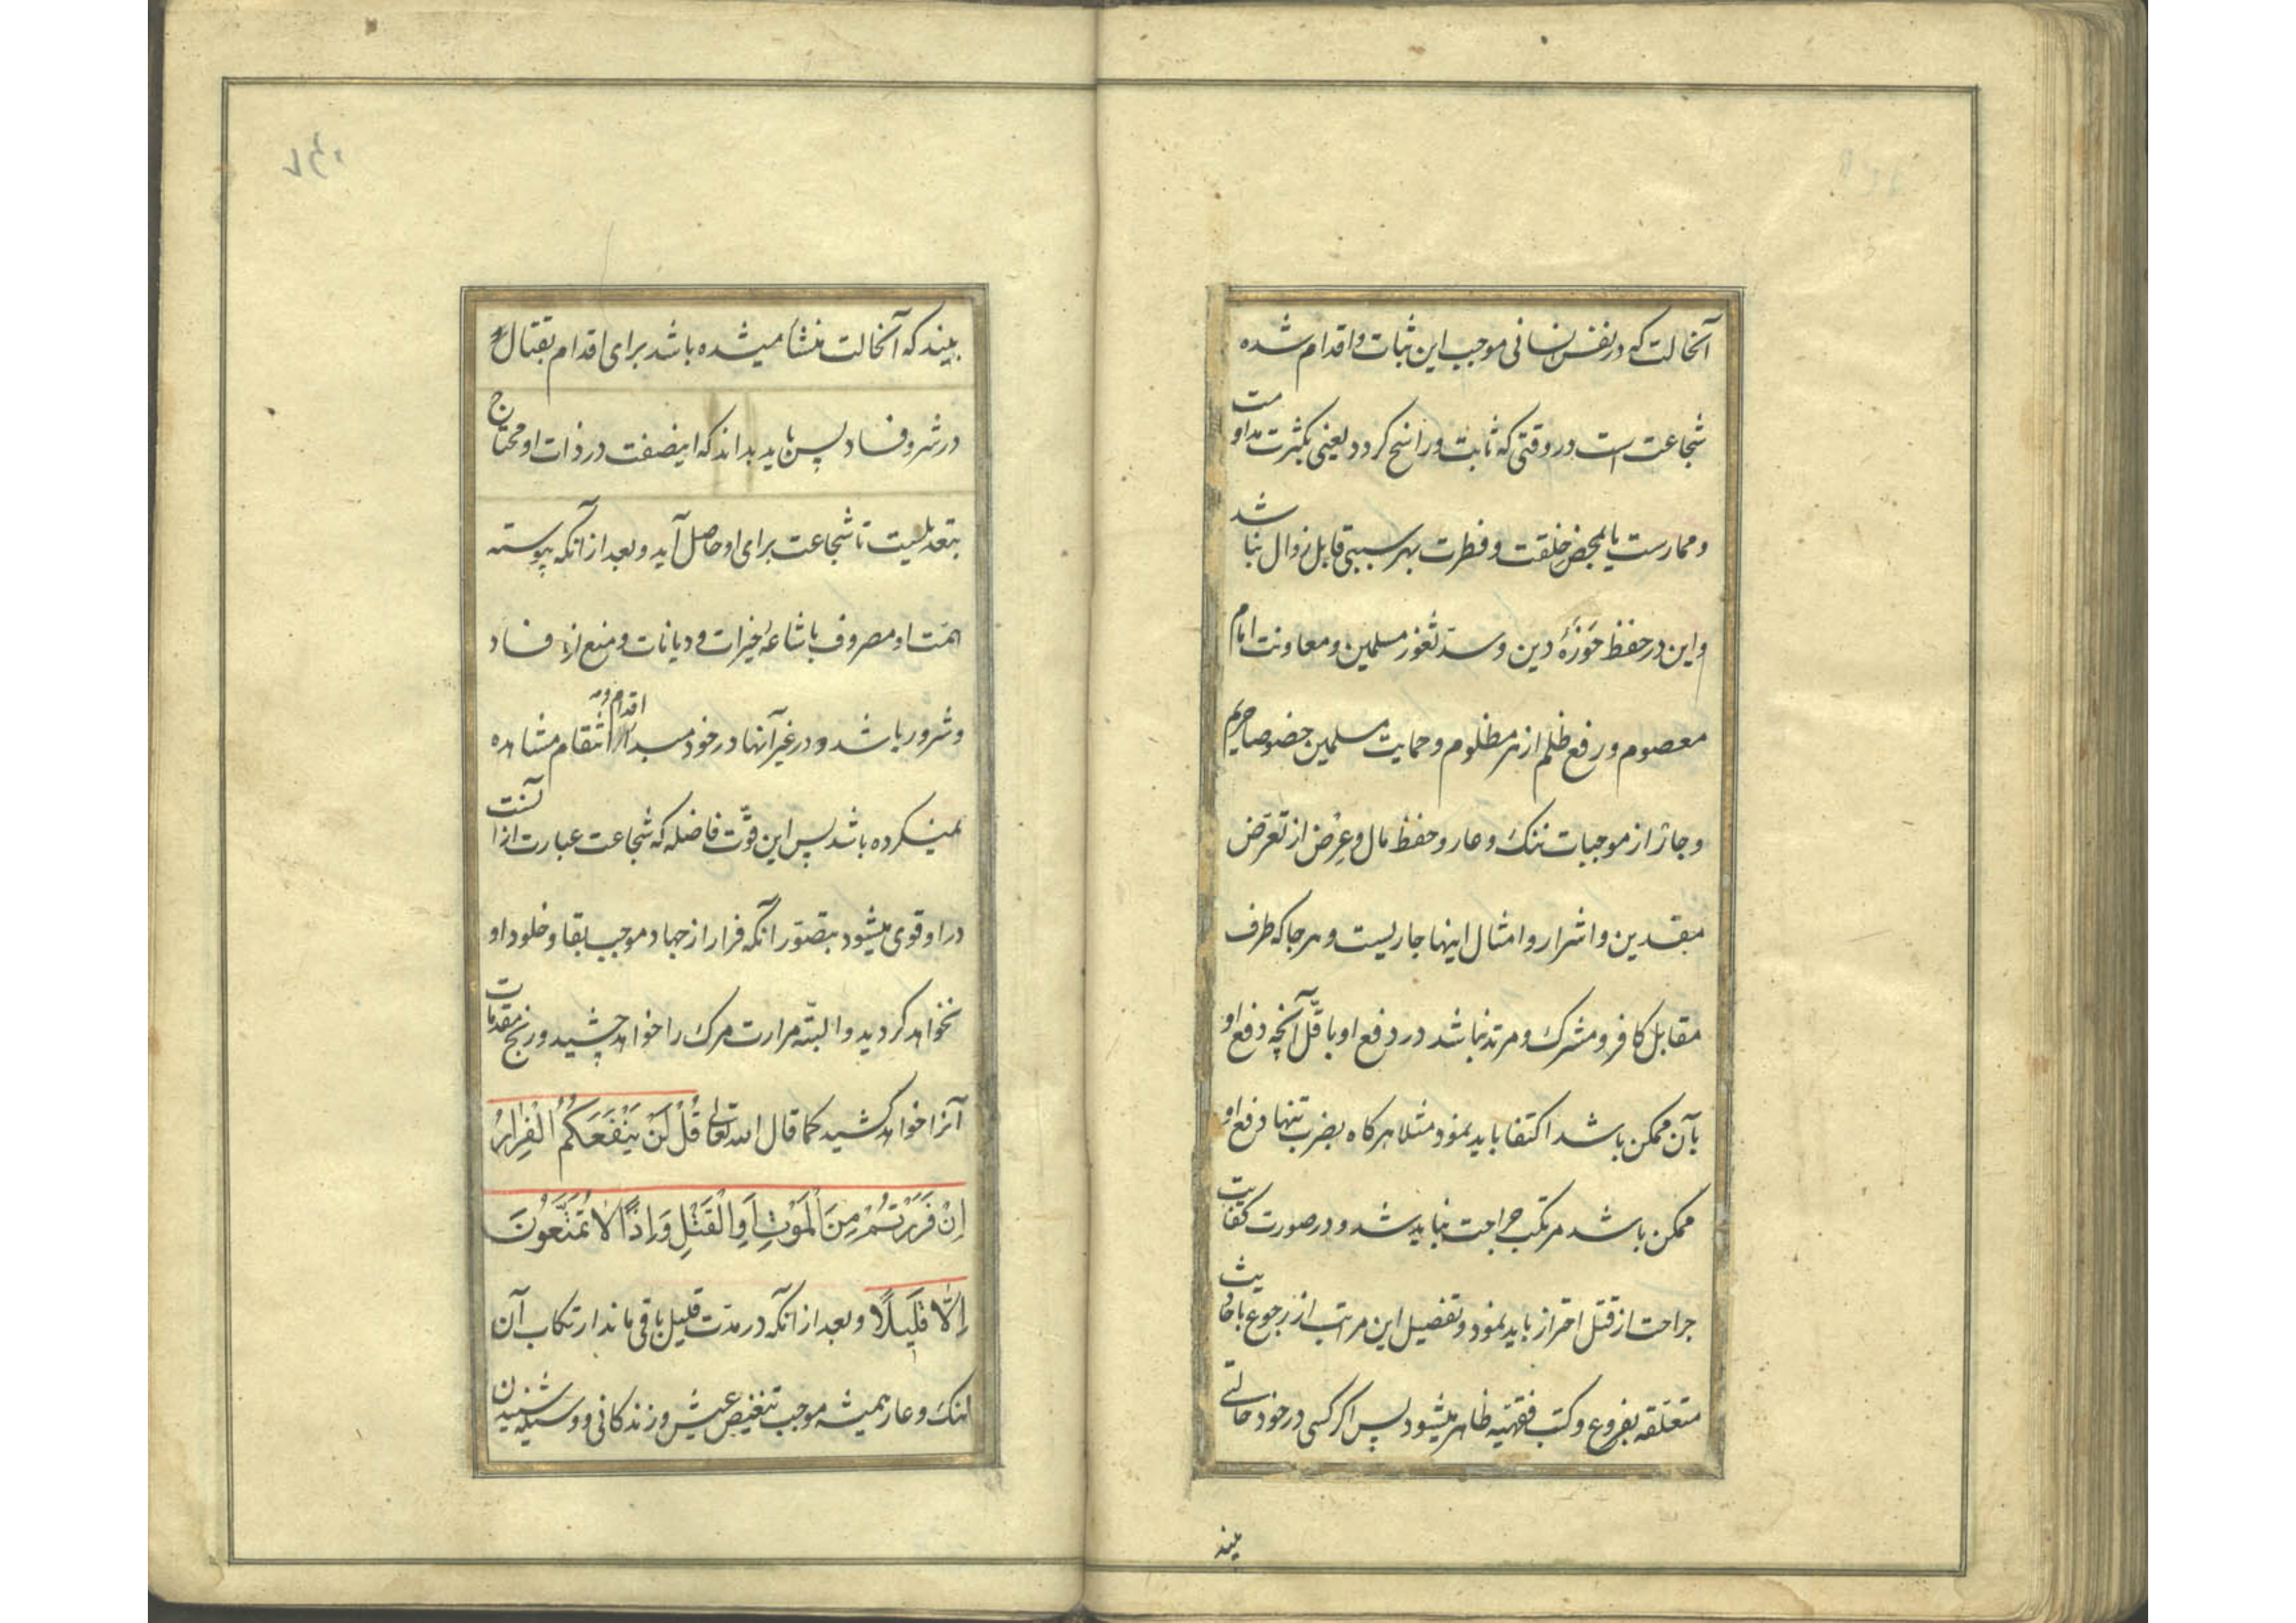 آنحالت که در نفس انسانی موجب این ثبات و اقدام شده
شجاعت است در وقتی که ثابت و راسخ کردد یعنی بکثرت مداومت
و ممارست یا بمحض خلقت و فطرت بهر سببی قابل زوال نباشد
و این در حفظ حَوزَهٔ دین و سدّ ثغور مسلمین و معاونت امام
معصوم و رفع ظلم از هر مظلوم و حمایت مسلمین خصوصا حریم
و جار از موجبات ننک و عار و حفظ مال و عِرض از تعرّض
مفسدین و اشرار و امثال اینها جاریست و هر جا که طرف
مقابل کافر و مشرک و مرتد نباشد در دفع او باقلّ آنچه دفع او
بآن ممکن باشد اکتفا باید نمود مثلا هر کاه بضرب تنها دفع او
ممکن باشد مرتکب جراحت نباید شد و در صورت کفایت
جراحت از قتل احتراز باید نمود و تفصیل این مراتب از رجوع باحادیث
متعلّقه بفروع و کتب فقهیّه ظاهر میشود پس اکر کسی در خود حالتی
بیند
بیند که آنحالت منشأ میشده باشد برای اقدام بقتال و
در شر و فساد پس باید بداند که اینصفت در ذات او محتاج
بتعدیلیست تا شجاعت برای او حاصل آید و بعد از آنکه پیوسته
همّت او مصروف باشاعهٔ خیرات و دیانات و منع از فساد
و شرور باشد و در غیر آنها در خود مبدأ اقدام و انتقام مشاهده
نمیکرده باشد پس این قوّت فاضله که شجاعت عبارت از آنست
در او قوی میشود بتصوّر آنکه فرار از جهاد موجب بقا و خلود او
نخواهد کردید و البتّه مرارت مرک را خواهد چشید و رنج مقدمات
آنرا خواهد کشید کما قال الله تعالی قُلْ لَنْ يَنْفَعَكُمُ الْفِرَارُ
اِنْ فَرَرْتُمْ مِنَ الْمَوْتِ اَوِ الْقَتْلِ وَاِذًا لَا تُمَتَّعُونَ
اِلَّا قَلِيلًا و بعد از آنکه در مدّت قلیل باقی ماند ارتکاب آن
ننک و عار همیشه موجب تنغیص عیش و زندکانی و وسیله شنیدن